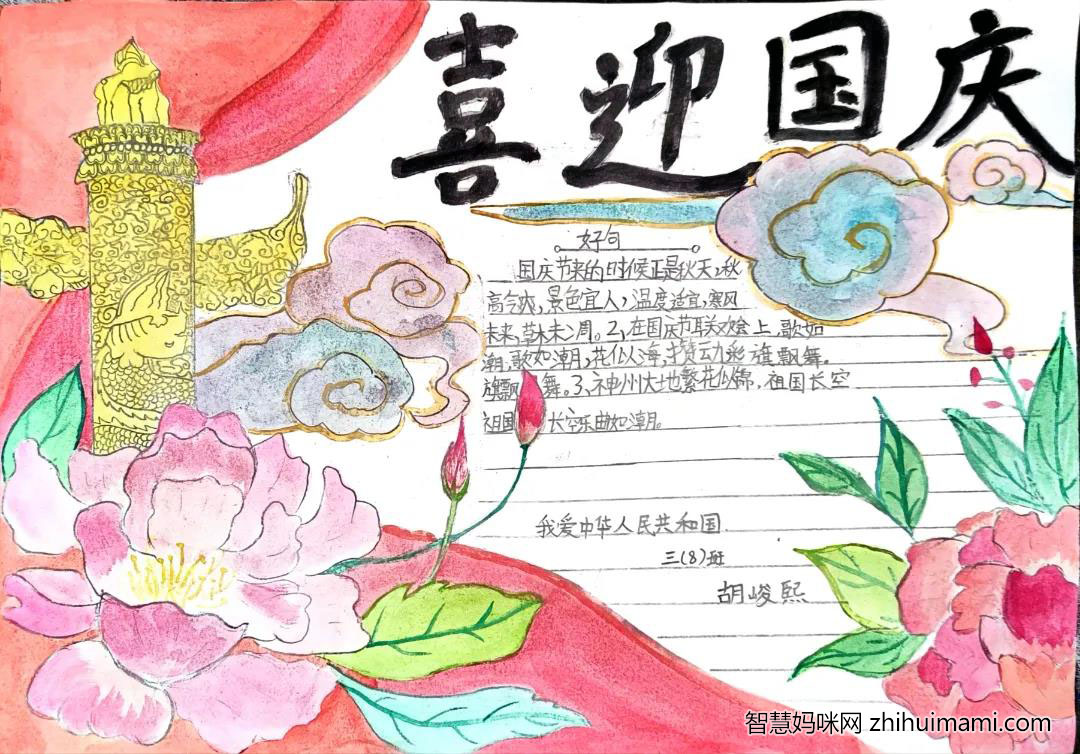 喜迎国庆
好句
国庆节来的时候正是秋天,秋
高气爽,景色宜人,温度适宜,寒风
未来,草木未凋。2、在国庆节联欢会上,歌如
潮,歌如潮,花似海,赞动彩旗飘舞。
旗飘 舞。3、神州大地繁花似锦,祖国长空
祖国 长空乐曲如潮。
我爱中华人民共和国
三(8)班
胡峻熙
智慧妈咪网 zhihuimami.com